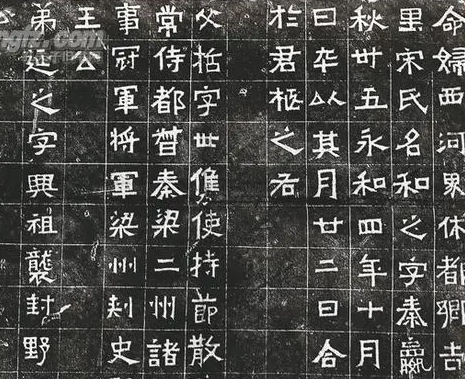 命婦西河界休都鄉吉
里宋氏名和之字秦嬴
秋卅五永和四年十月
日卒以其月廿二日合
於君柩之右
父哲字世儁使持節散
常侍都督秦梁二州諸
事冠軍將軍梁州刺史
王公
弟延之字興祖襲封野